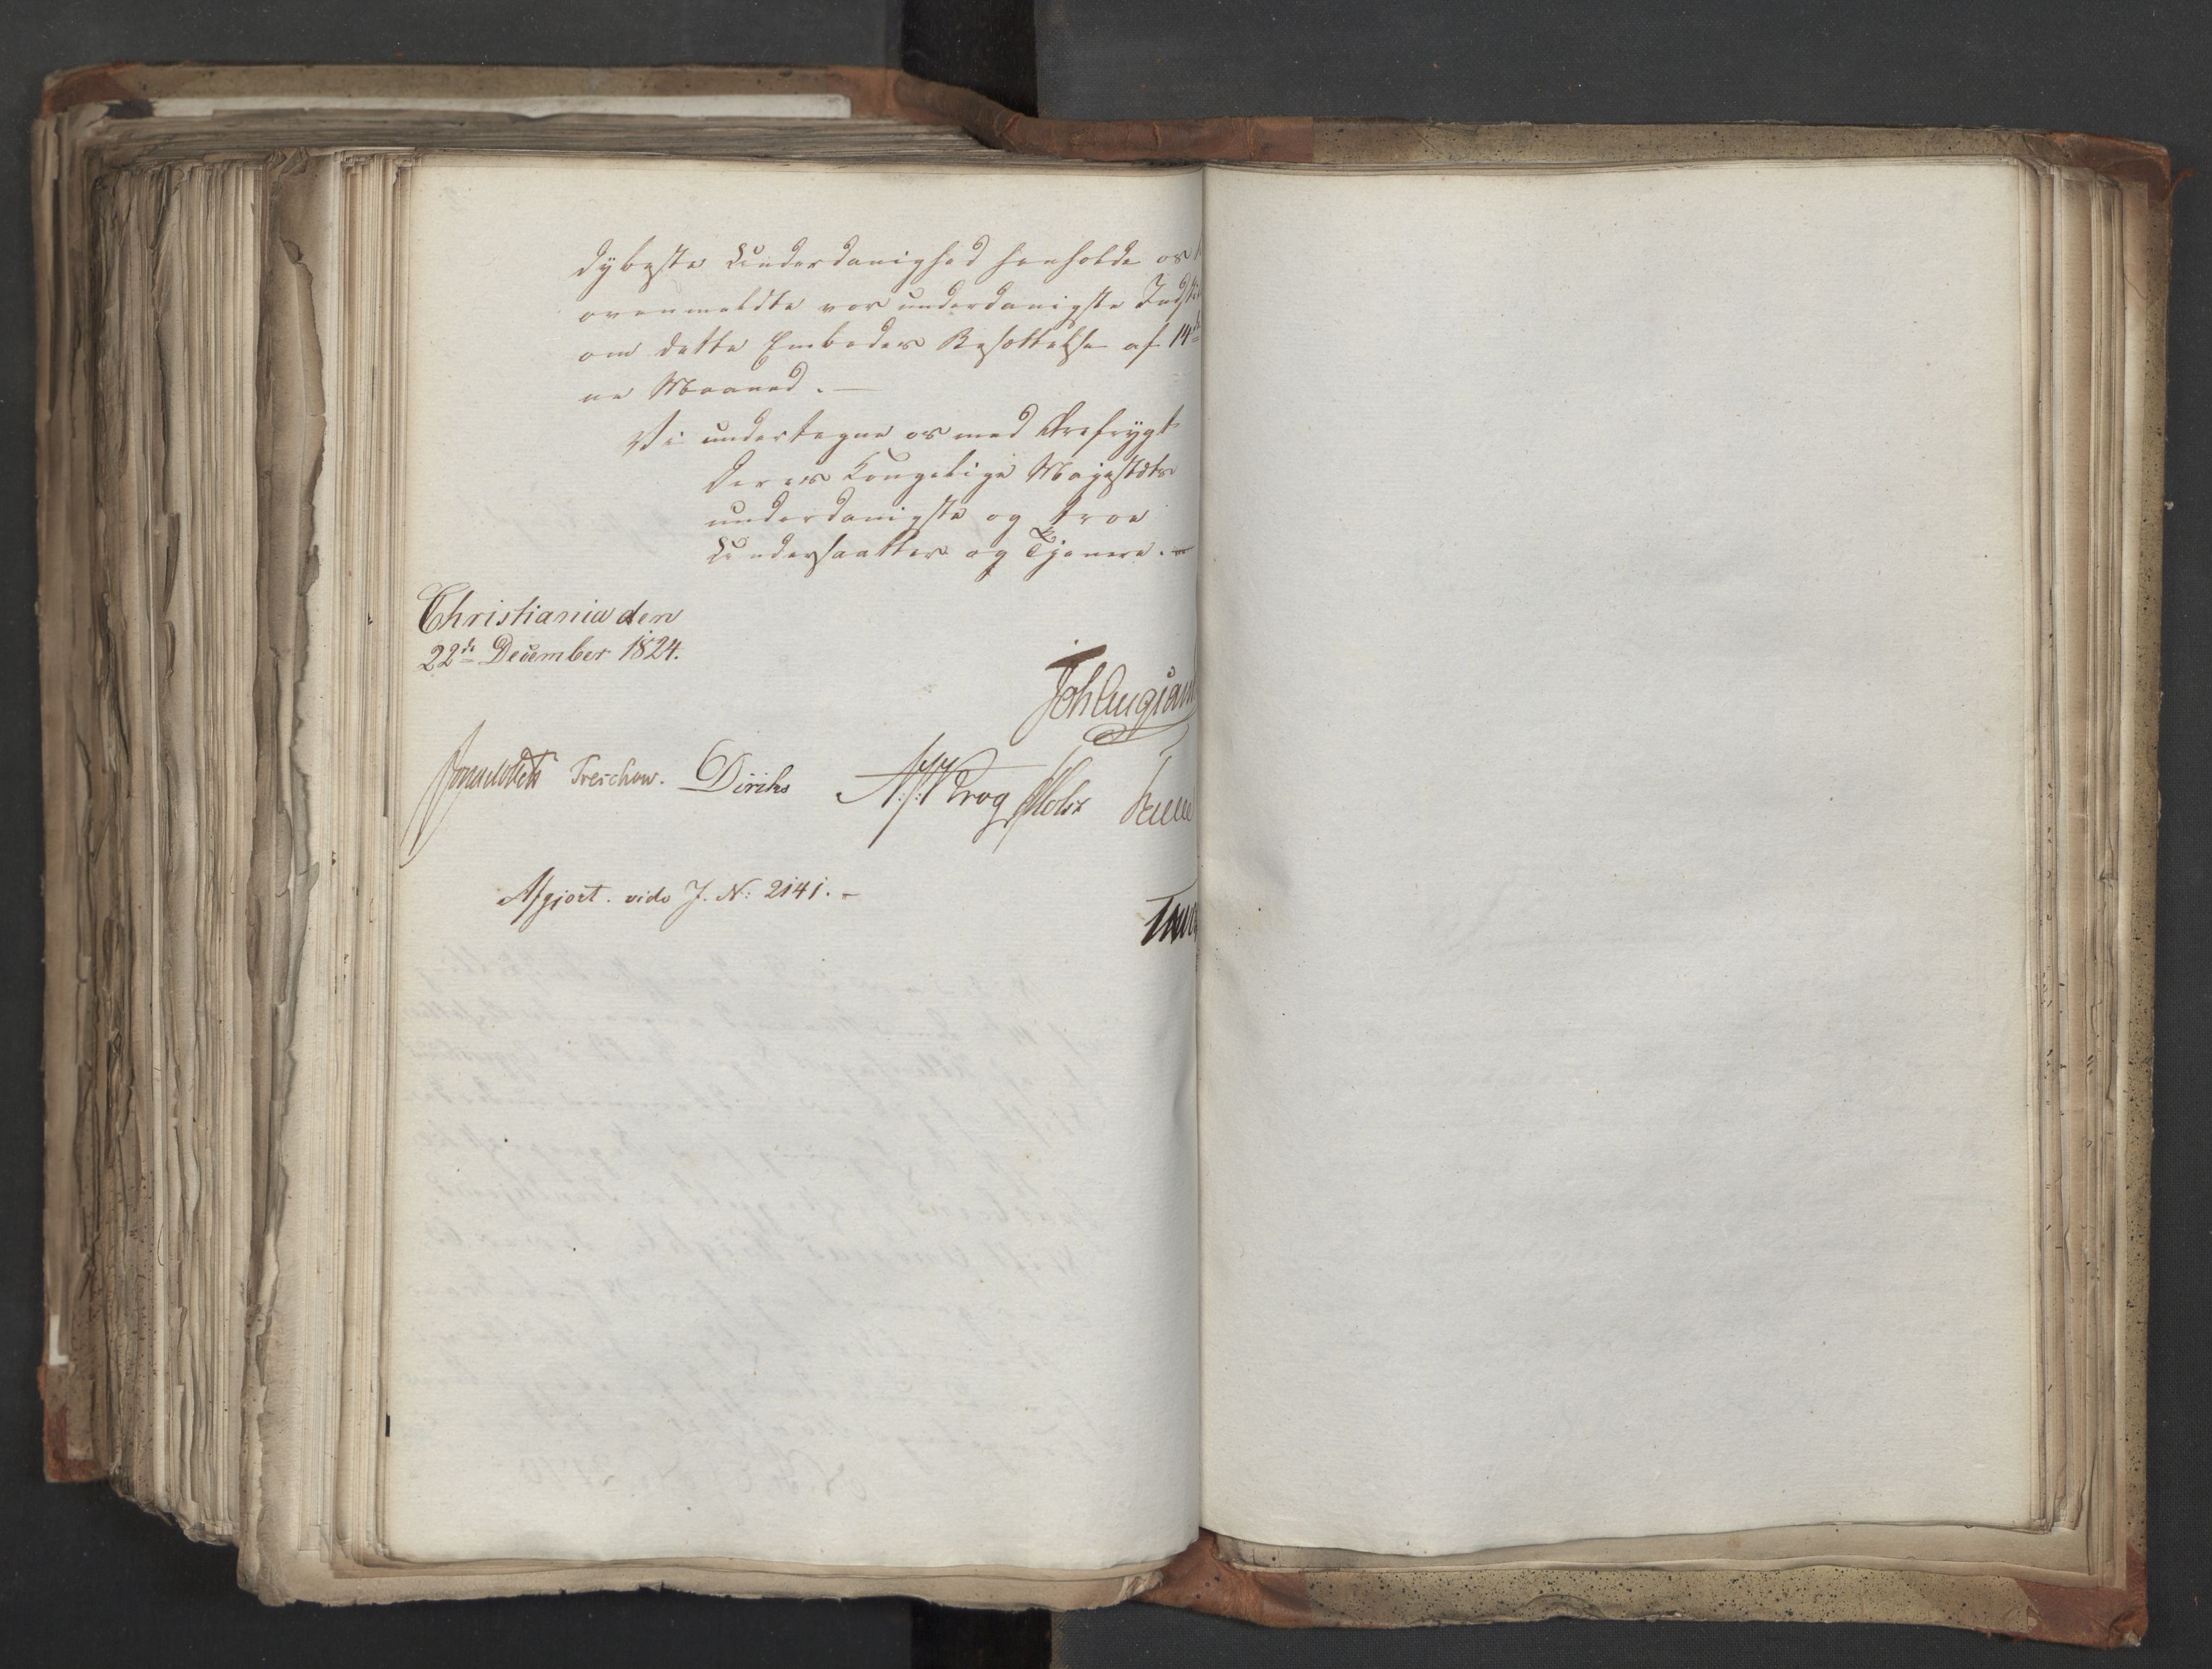 dybeste Underdanighed henholde os
ovenmeldte vor underdanigste Indsti
om dette Embedes Besættelse af 14de
ne Maaned. —
Vi undertegne os med Ærefrygt
Deres Kongelige Majestæts
underdanigste og troe
Undersaatter og Tjenere. —
Christiania den
22de December 1824.
Joh Aug Sand
Sommerhielm Treschow. Diriks A: f: Krog Holst
Afgjort. vide J. N: 2141. –